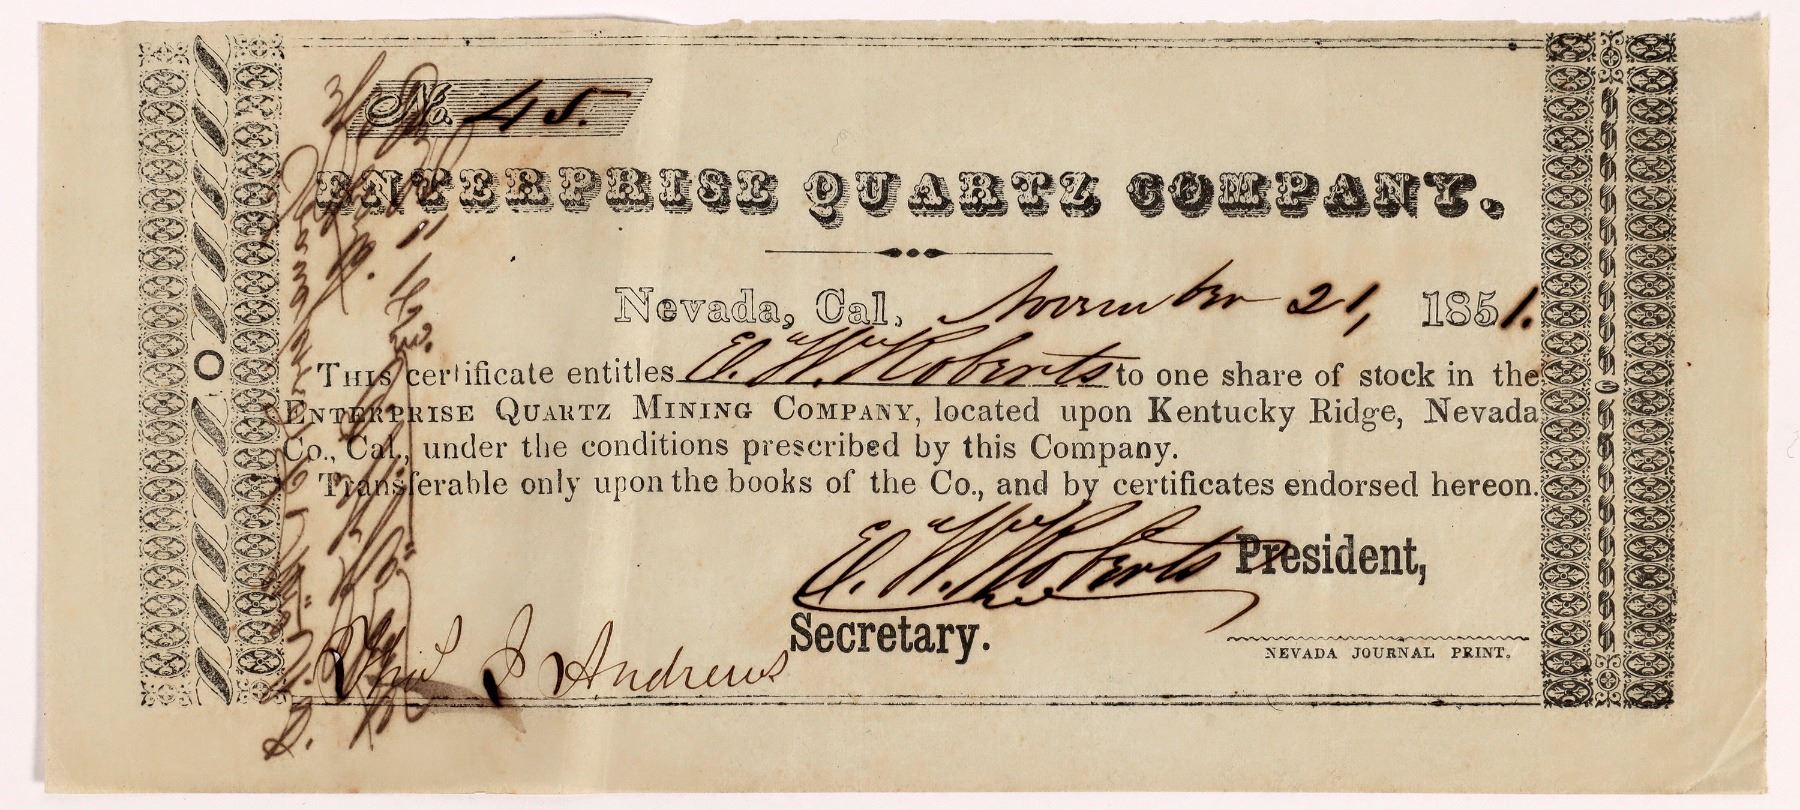 No. 45.
ENTERPRISE QUARTZ COMPANY.
Nevada, Cal, November 21, 1851.
THIS certificate entitles E. W. Roberts to one share of stock in the
ENTERPRISE QUARTZ MINING COMPANY, located upon Kentucky Ridge, Nevada
Co., Cal., under the conditions prescribed by this Company.
Transferable only upon the books of the Co., and by certificates endorsed hereon.
E. W. Roberts President,
J Andrews Secretary.
NEVADA JOURNAL PRINT.